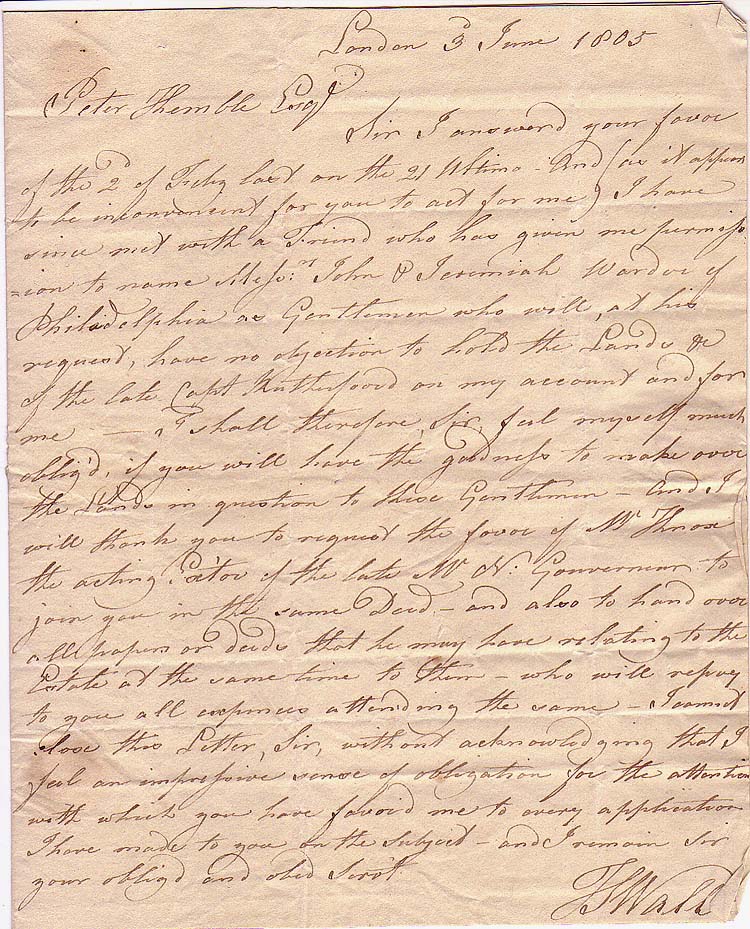 London 3d June 1805
Peter Kemble Esqr
Sir I answerd your favor
of the 2d of Feby last on the 21 Ultimo - And (as it appears
to be inconvenient for you to act for me) I have
since met with a Friend who has given me permiss
=ion to name Messrs John & Jeremiah Warder of
Philadelphia as Gentlemen who will, at his
request, have no objection to hold the Lands &c
of the late Capt Rutherfoord on my account and for
me - I shall therefore, Sir, feel myself much
oblig'd, if you will have the goodness to make over
the Lands in question to these Gentlemen - And I
will thank you to request the favor of Mr Knox
the acting Ex/tor of the late Mr N. Gouverneur to
join you in the same Deed - and also to hand over
all papers or deeds that he may have relating to the
Estate at the same time to them - who will repay
to you all expences attending the same - I cannot
close this Letter, Sir, without acknowledging that I
feel an impressive sense of obligation for the attention
with which you have favoid me to every application
I have made to you on the subject - and I remain sir
your obligd and obed Servt
Wall